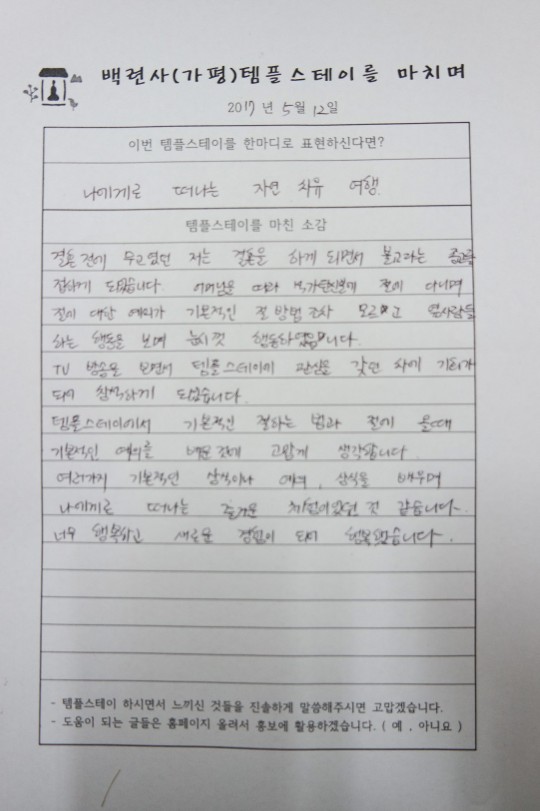 백련사(가평)템플스테이를 마치며
2017 년 5월 12일
이번 템플스테이를 한마디로 표현하신다면?
나에게로 떠나는 자연 치유 여행
템플스테이를 마친 소감
결혼 전에 무교였던 저는 결혼을 하게 되면서 불교라는 종교를
접하게 되었습니다. 어머님을 따라 절에 다니며
절에 대한 예의가 기본적인 절 방법조차 모르고 옆사람들
하는 행동을 보며 눈치껏 행동하였습니다.
TV 방송을 보면서 템플스테이에 관심을 갖던 차에 기회가
되어 참석하게 되었습니다.
템플스테이에서 기본적인 절하는 법과 절에 올때
기본적인 예의를 배운것에 고맙게 생각합니다.
여러가지 기본적인 상식이나 예의, 상식을 배우며
나에게로 떠나는 즐거운 체험이었던 것 같습니다.
너무 행복하고 새로운 경험이 되어 행복했습니다.
- 템플스테이 하시면서 느끼신 것들을 진솔하게 말씀해주시면 고맙겠습니다.
- 도움이 되는 글들은 홈페이지 올려서 홍보에 활용하겠습니다. ( 예 , 아니요 )